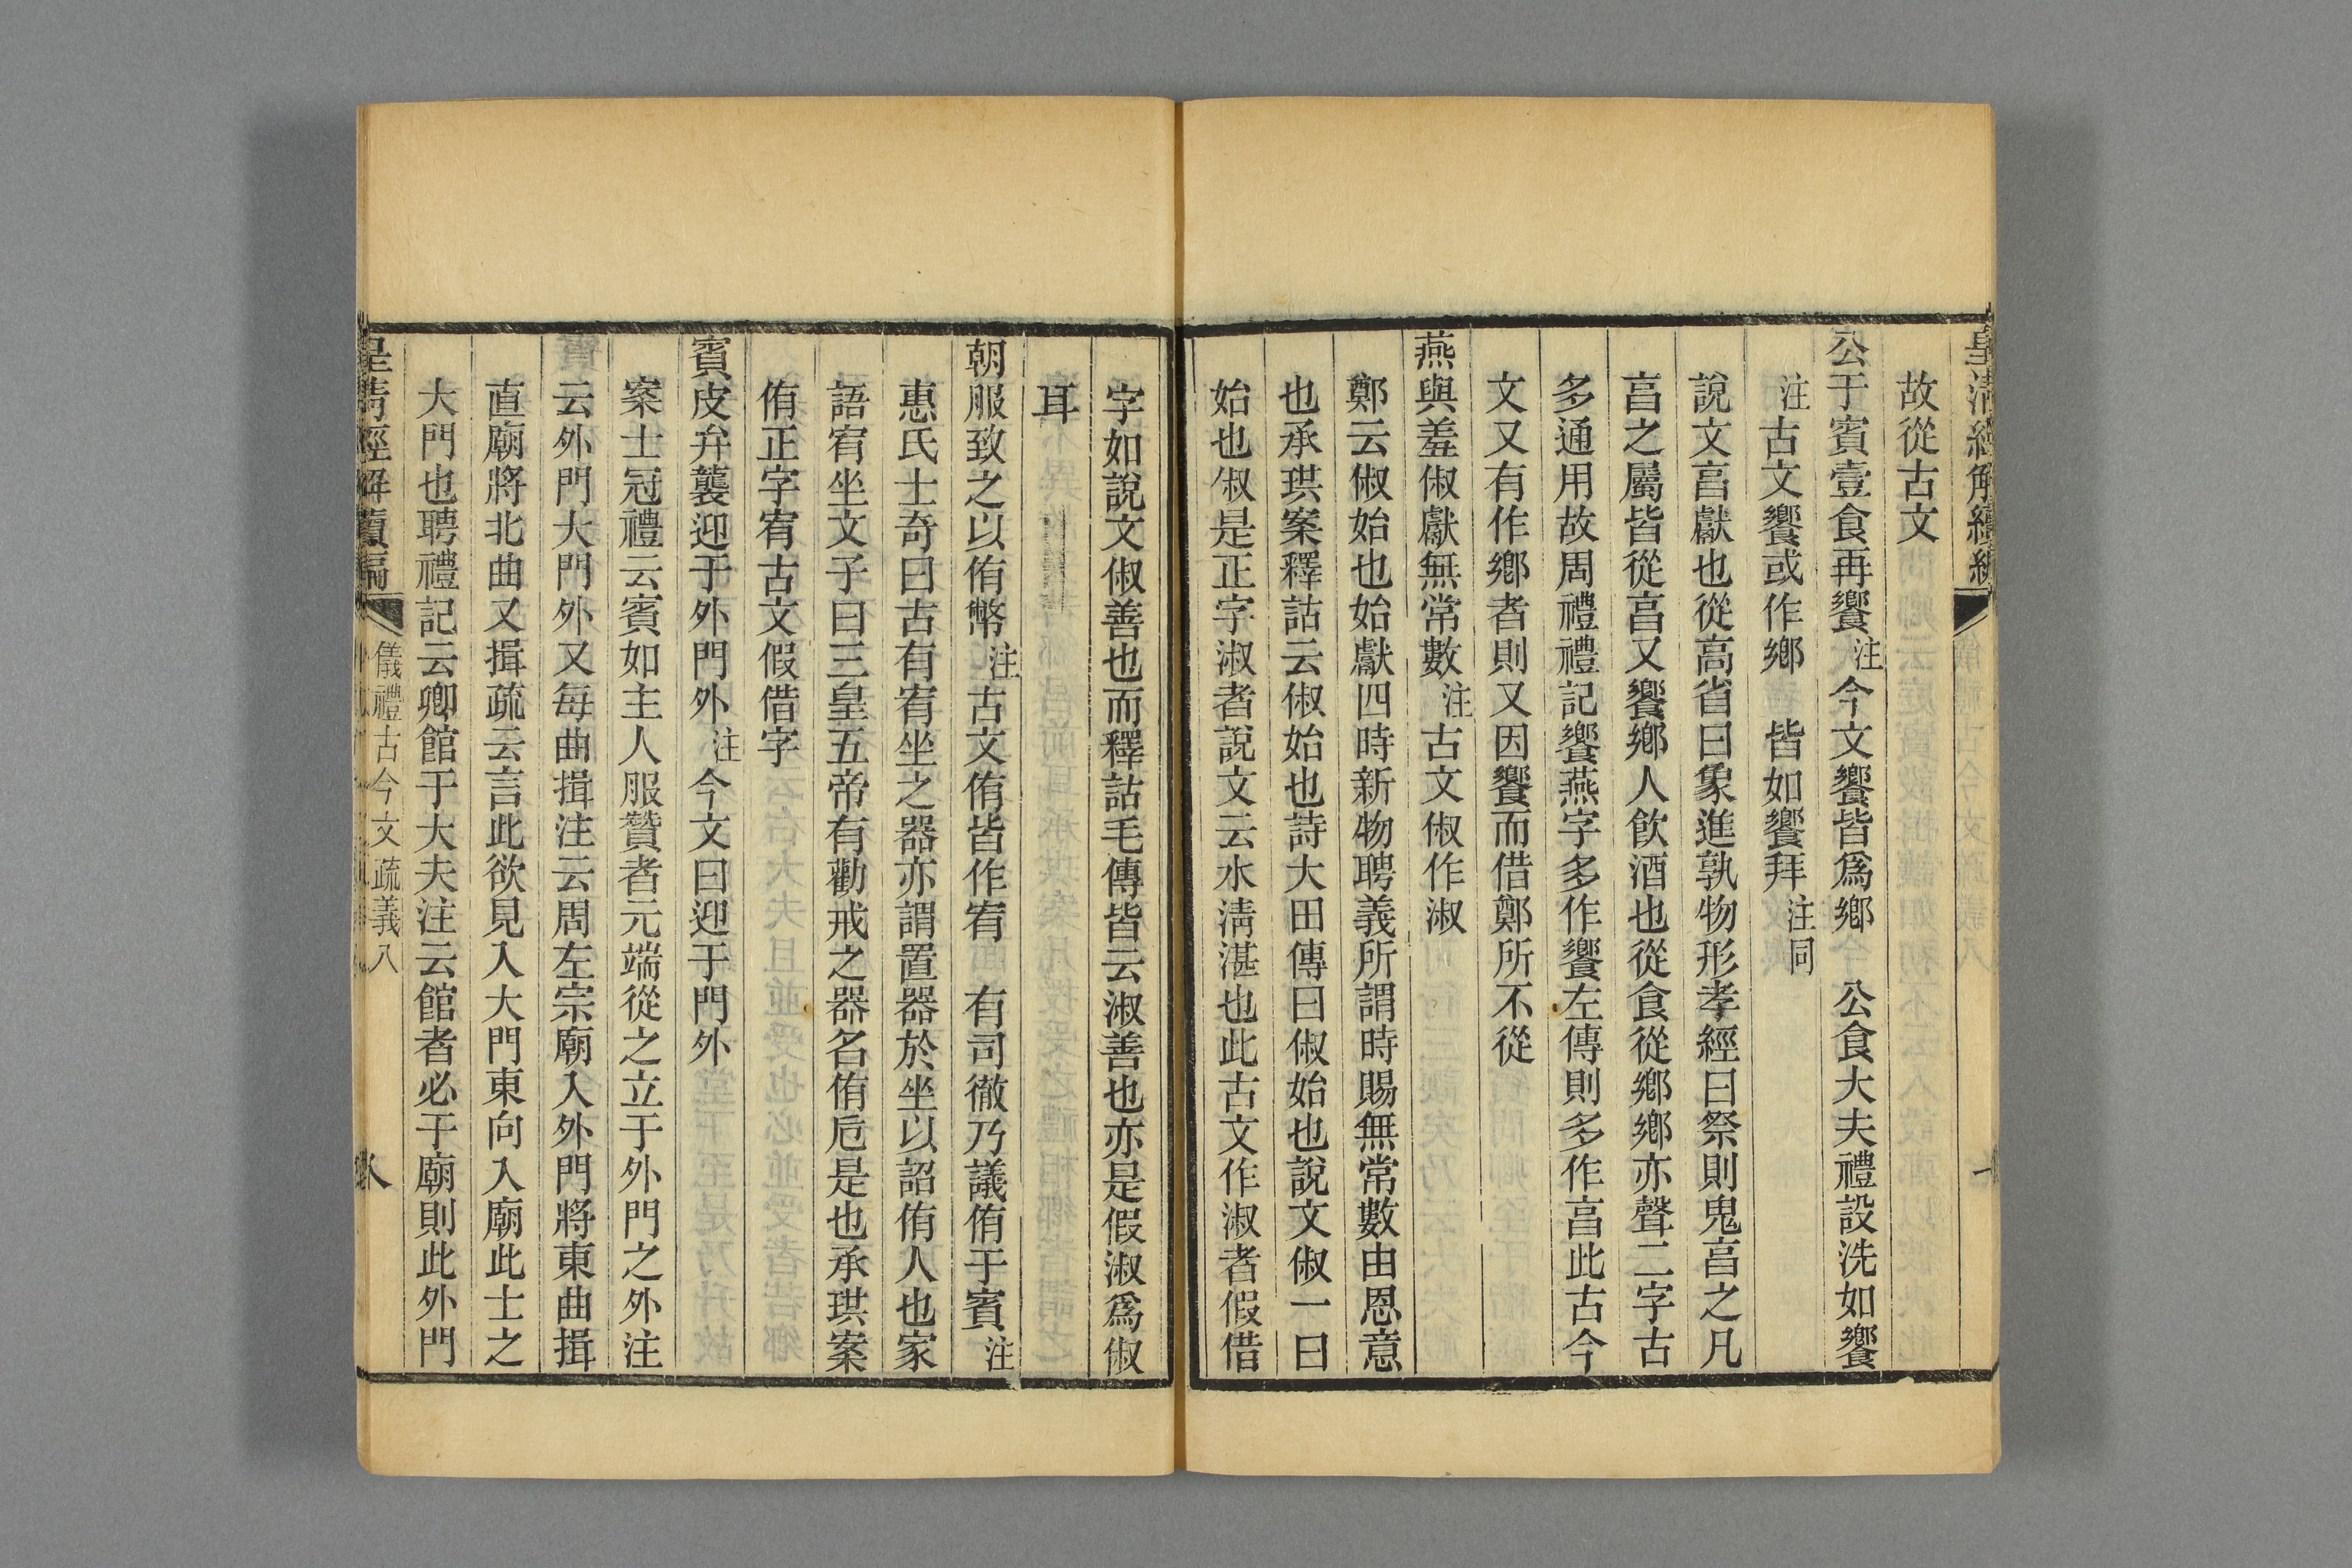 故從古文
公于賓壹食再饗注今文饗皆爲鄉　公食大夫禮設洗如饗
注古文饗或作鄉　皆如饗拜注同
說文亯獻也從高省曰象進孰物形孝經曰祭則鬼亯之凡
亯之屬皆從亯又饗鄉人飮酒也從食從鄉鄉亦聲二字古
多通用故周禮禮記饗燕字多作饗左傳則多作亯此古今
文又有作鄉者則又因饗而借鄭所不從
燕與羞俶獻無常數注古文俶作淑
鄭云俶始也始獻四時新物聘義所謂時賜無常數由恩意
也承珙案釋詁云俶始也詩大田傳曰俶始也說文俶一曰
始也俶是正字淑者說文云水淸湛也此古文作淑者假借
字如說文俶善也而釋詁毛傳皆云淑善也亦是假淑爲俶
耳
朝服致之以侑幣注古文侑皆作宥　有司徹乃議侑于賓注
惠氏士奇曰古有宥坐之器亦謂置器於坐以詔侑人也家
語宥坐文子曰三皇五帝有勸戒之器名侑卮是也承珙案
侑正字宥古文假借字
賓皮弁襲迎于外門外注今文曰迎于門外
案士冠禮云賓如主人服贊者元端從之立于外門之外注
云外門大門外又每曲揖注云周左宗廟入外門將東曲揖
直廟將北曲又揖疏云言此欲見入大門東向入廟此士之
大門也聘禮記云卿館于大夫注云館者必于廟則此外門
皇淸經解續編
儀禮古今文疏義八